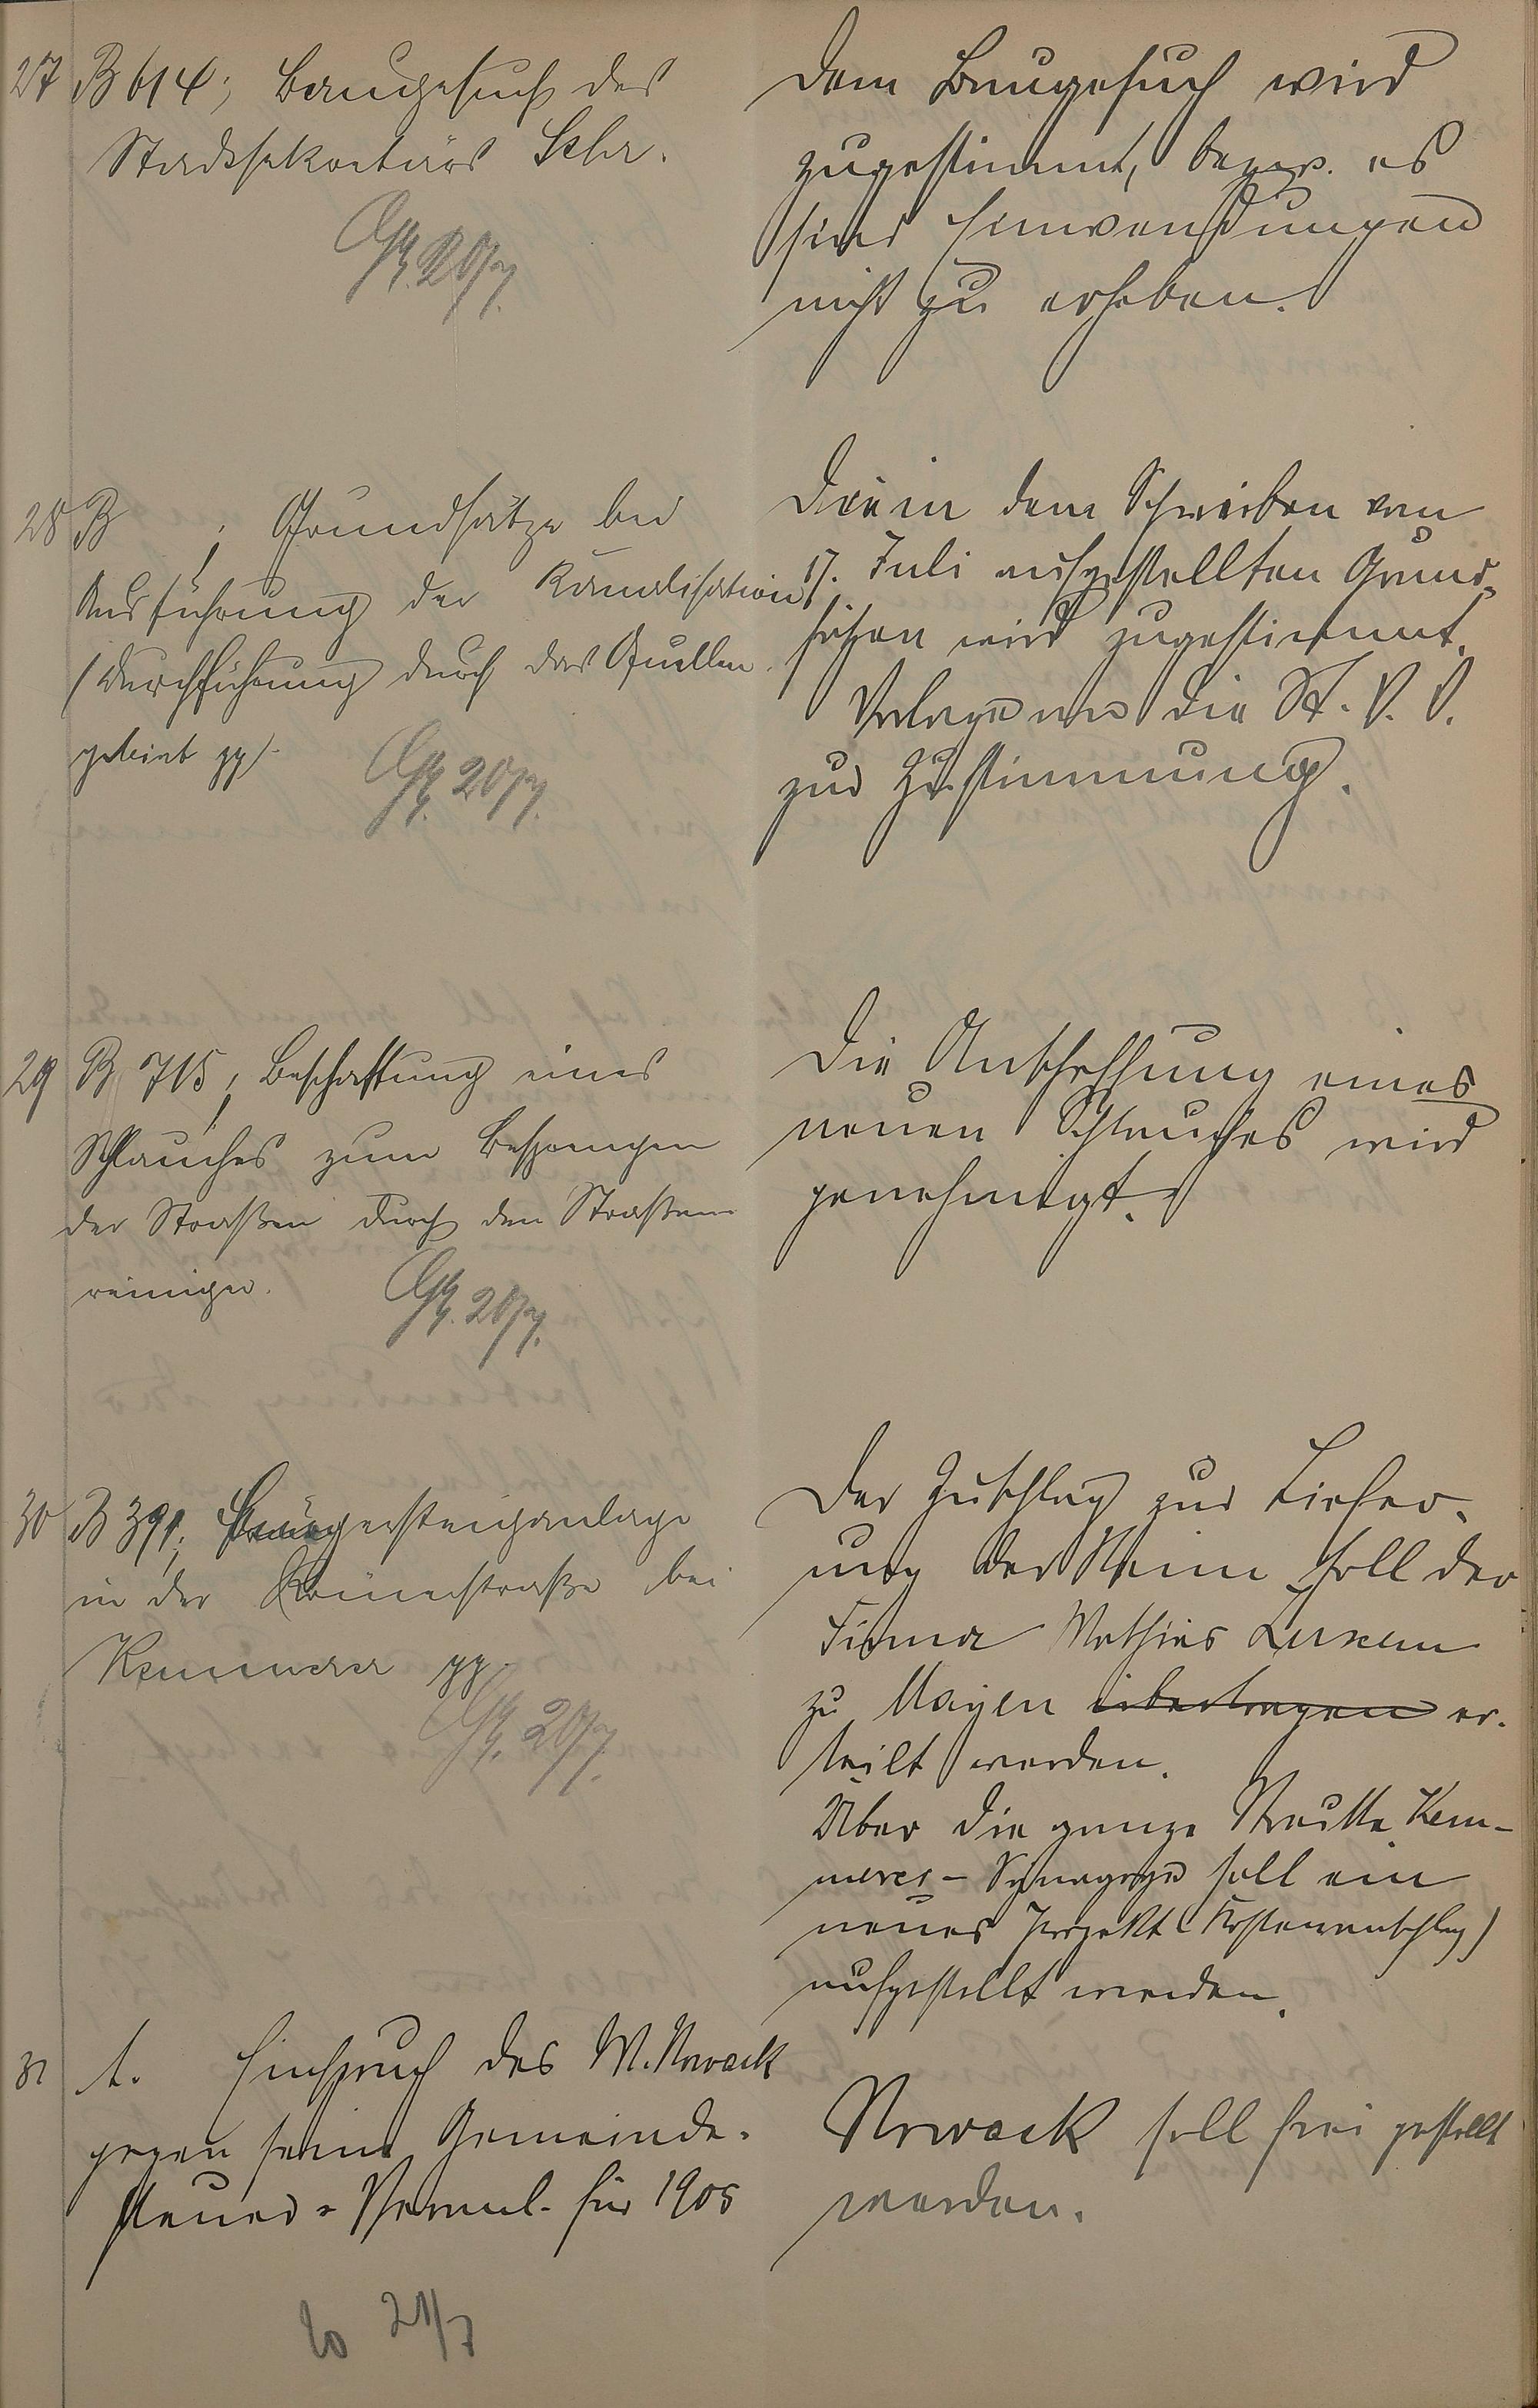 27 B 614; Baugesuch des
Stadtsekretärs Sehr.
Gk. 20/7.
Dem Baugesuch wird
zugestimmt, bezw. es
sind Einwendungen
nicht zu erheben.
28 B ; Grundsätze bei
Ausführung der Kanalisation
(Durchführung durch das Quellen-
gebiet pp).
Gk. 20/7.
Die in dem Schreiben vom
17. Juli aufgestellten Grund-
sätzen wird zugestimmt.
Vorlage an die St. V. V.
zur Zustimmung.
29 B 715; Beschaffung eines
Schlauches zum Besprengen
der Straßen durch den Straßen-
reiniger.
Gk. 20/7.
Die Anschaffung eines
neuen Schlauches wird
genehmigt.
30 B 391; Bürgersteiganlage
in der bei
Kemmerer pp.
Gk. 20/7.
Der Zuschlag zur Liefer-
ung der Steine soll der
Firma Mathias Luxem
zu Mayen übertragen er-
teilt werden.
Über die ganze Kem-
merer - Synagoge soll ein
neues Projekt (Kostenanschlag)
aufgestellt werden.
31 A. Einspruch des M. Nowack
gegen seine Gemeinde-
steuer-Veranl. für 1905
21/7
Nowack soll frei gestellt
werden.